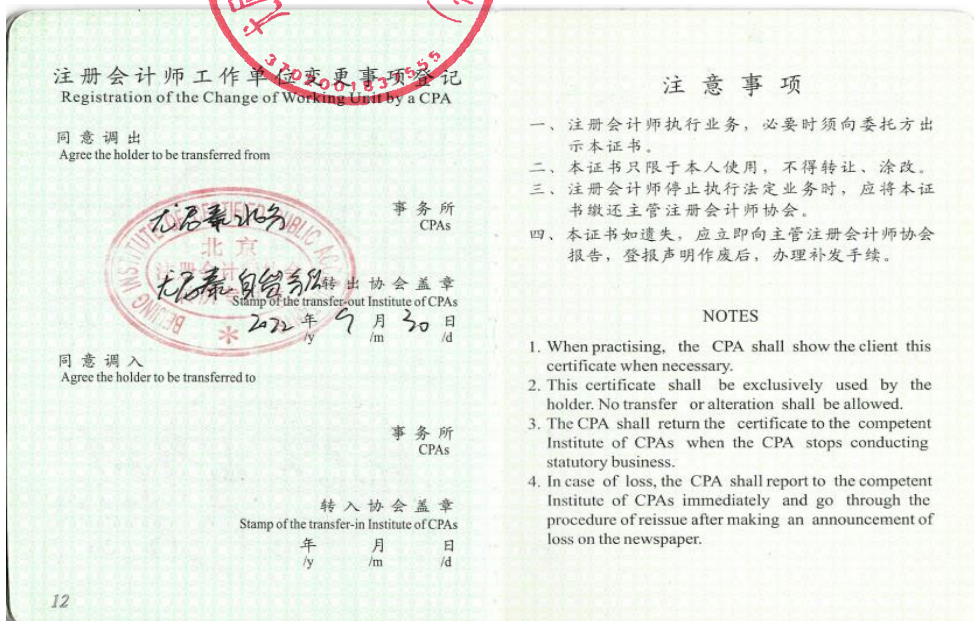 3702001837555
注册会计师工作单位变更事项登记
Registration of the Change of Working Unit by a CPA
同意调出
Agree the holder to be transferred from
事务所
CPAs
北京
BEIJING INSTITUTE OF CERTIFIED PUBLIC
转出协会盖章
Stamp of the transfer-out Institute of CPAs
2022 年 9 月 30 日
/y /m /d
同意调入
Agree the holder to be transferred to
事务所
CPAs
转入协会盖章
Stamp of the transfer-in Institute of CPAs
年 月 日
/y /m /d
12
注意事项
一、注册会计师执行业务，必要时须向委托方出
示本证书。
二、本证书只限于本人使用，不得转让、涂改。
三、注册会计师停止执行法定业务时，应将本证
书缴还主管注册会计师协会。
四、本证书如遗失，应立即向主管注册会计师协会
报告，登报声明作废后，办理补发手续。
NOTES
1. When practising, the CPA shall show the client this
certificate when necessary.
2. This certificate shall be exclusively used by the
holder. No transfer or alteration shall be allowed.
3. The CPA shall return the certificate to the competent
Institute of CPAs when the CPA stops conducting
statutory business.
4. In case of loss, the CPA shall report to the competent
Institute of CPAs immediately and go through the
procedure of reissue after making an announcement of
loss on the newspaper.